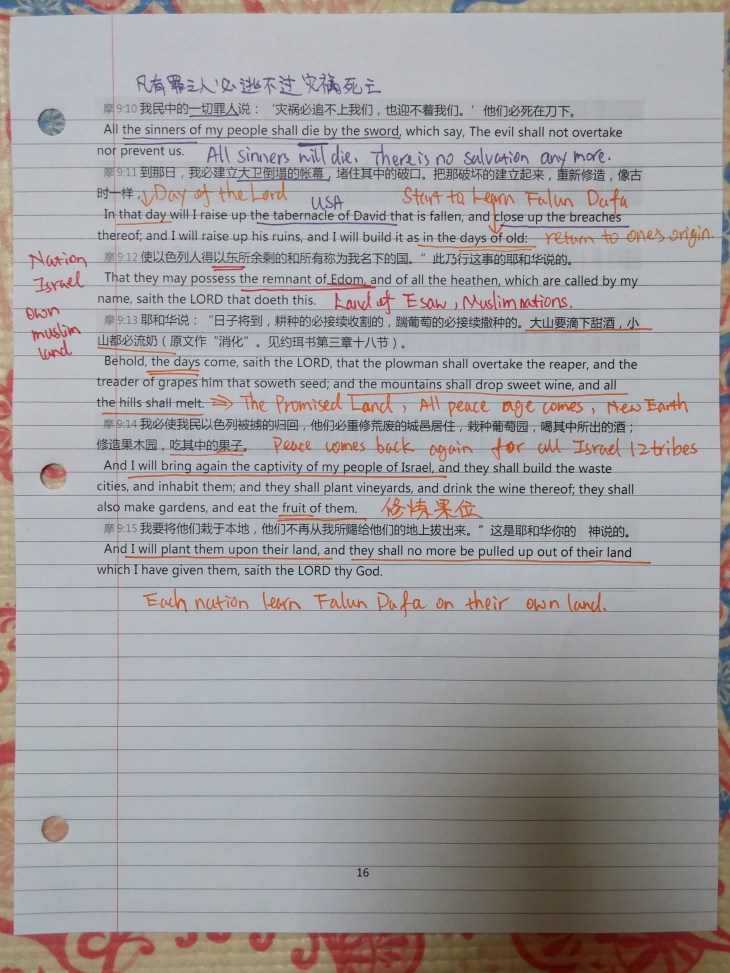 凡有罪之人必逃不过灾祸死亡
摩9:10 我民中的一切罪人说：‘灾祸必追不上我们，也迎不着我们。’他们必死在刀下。
All the sinners of my people shall die by the sword, which say, The evil shall not overtake
nor prevent us. All sinners will die. There is no salvation any more.
摩9:11 到那日，我必建立大卫倒塌的帐幕，堵住其中的破口。把那破坏的建立起来，重新修造，像古
时一样， Day of the Lord USA Start to Learn Falun Dafa
In that day will I raise up the tabernacle of David that is fallen, and close up the breaches
thereof; and I will raise up his ruins, and I will build it as in the days of old: return to ones origin.
摩9:12 使以色列人得以东所余剩的和所有称为我名下的国。”此乃行这事的耶和华说的。
That they may possess the remnant of Edom, and of all the heathen, which are called by my
name, saith the LORD that doeth this. Land of Esaw, Muslim nations.
Nation
Israel
own
muslim
land
摩9:13 耶和华说：“日子将到，耕种的必接续收割的，踹葡萄的必接续撒种的。大山要滴下甜酒，小
山都必流奶（原文作“消化”。见约珥书第三章十八节）。
Behold, the days come, saith the LORD, that the plowman shall overtake the reaper, and the
treader of grapes him that soweth seed; and the mountains shall drop sweet wine, and all
the hills shall melt. ⇒ The Promised Land, All peace age comes, New Earth
摩9:14 我必使我民以色列被掳的归回，他们必重修荒废的城邑居住，栽种葡萄园，喝其中所出的酒；
修造果木园，吃其中的果子。 Peace comes back again for all Israel 12 tribes
And I will bring again the captivity of my people of Israel, and they shall build the waste
cities, and inhabit them; and they shall plant vineyards, and drink the wine thereof; they shall
also make gardens, and eat the fruit of them. 修炼果位
摩9:15 我要将他们栽于本地，他们不再从我所赐给他们的地上拔出来。”这是耶和华你的 神说的。
And I will plant them upon their land, and they shall no more be pulled up out of their land
which I have given them, saith the LORD thy God.
Each nation learn Falun Dafa on their own land.
16